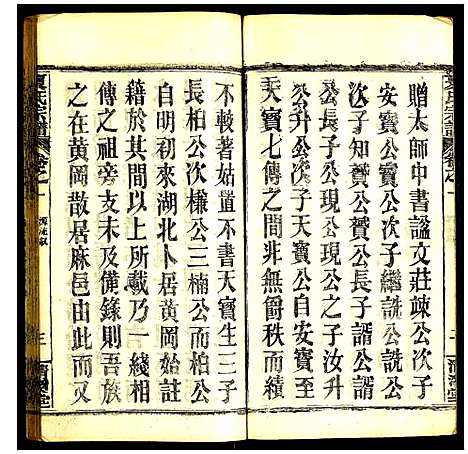 贈太師中書諡文莊竦公次子
安寶公寶公次子繼詵公詵公
次子知贇公贇公長子諝公諝
公長子公現公現公之子汝升
公升公次子天寶公自安寶至
天寶七傳之間非無爵秩勳績
不較著姑置不書天寶生三子
長柏公次樣公三楠公而柏公
自明初來湖北卜居黃岡始註
籍於其間以上所載乃一綫相
傳之祖旁支未及備錄則吾族
之在黃岡散居麻邑由此而又
夏氏宗譜
卷之一
三